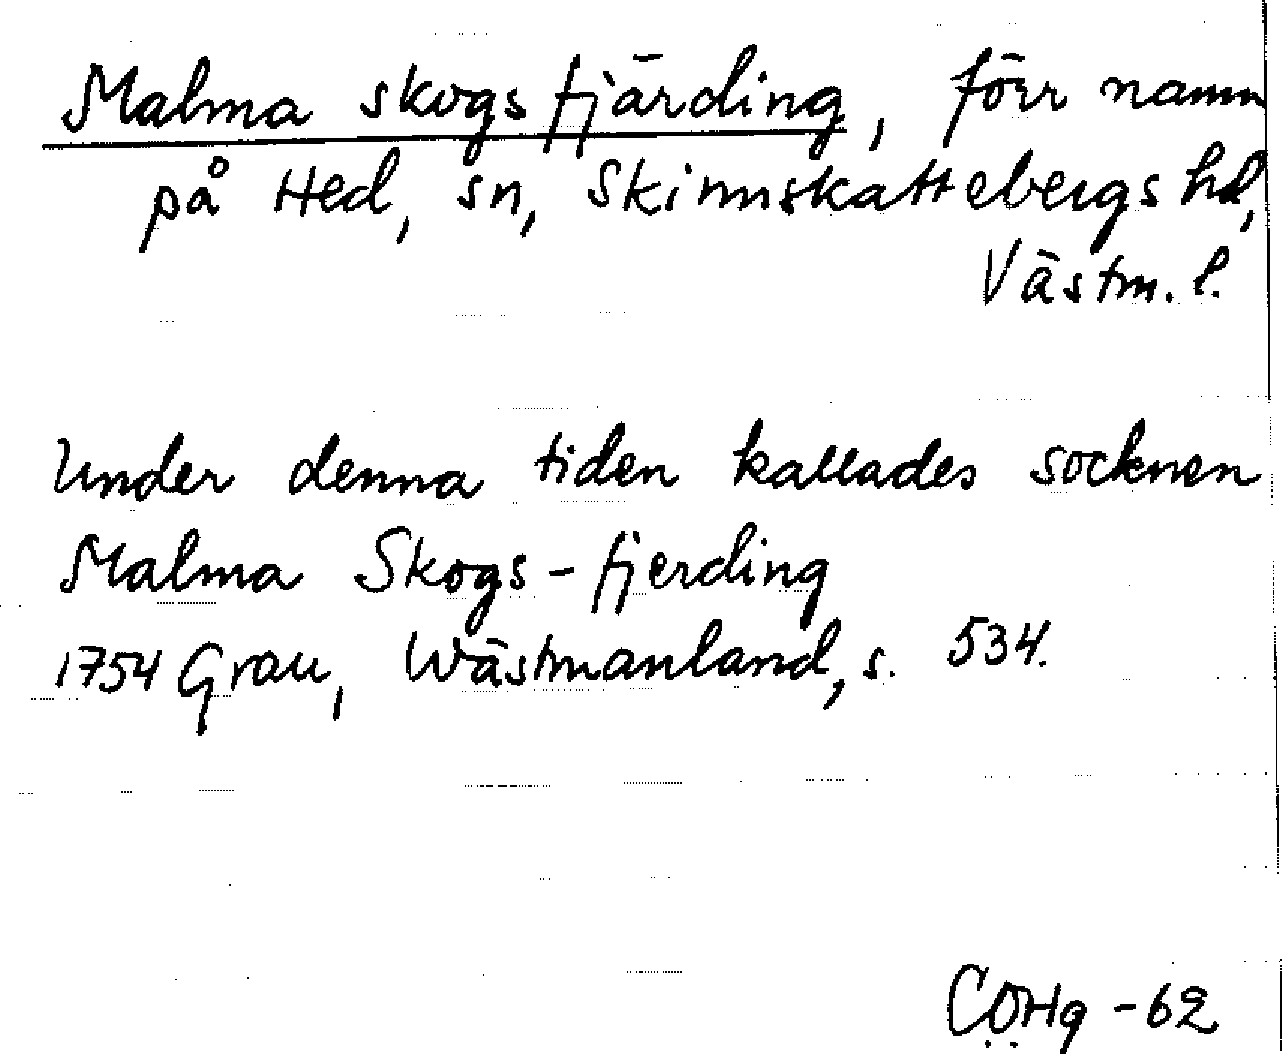 Malma skogsfjärding, förr namn
på Hed, sn, Skinnskattebergs hd,
Västm. l.
Under denna tiden kallades socknen
Malma Skogs-fjerding
1754 Grau, Wästmanland, s. 534.
CÖHg -62